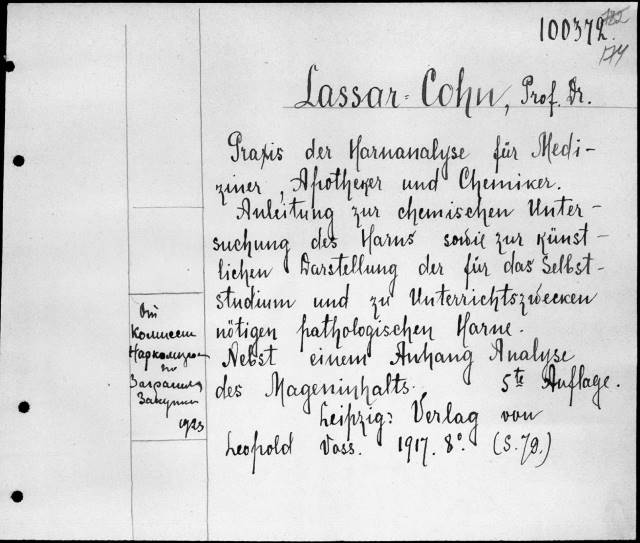 100372.
174
Lassar-Cohn, Prof. Dr.
Praxis der Harnanalyse für Medi-
ziner, Apotheker und Chemiker.
Anleitung zur chemischen Unter-
suchung des Harns sowie zur künst-
lichen Darstellung der für das Selbst-
studium und zu Unterrichtszwecken
nötigen pathologischen Harne.
Nebst einem Anhang Analyse
des Mageninhalts. 5te Auflage.
Leipzig: Verlag von
Leopold Voss. 1917. 8°. (S. 79.)
От
Комиссии
Наркомздрава
по
Загранич.
Закупки
1923